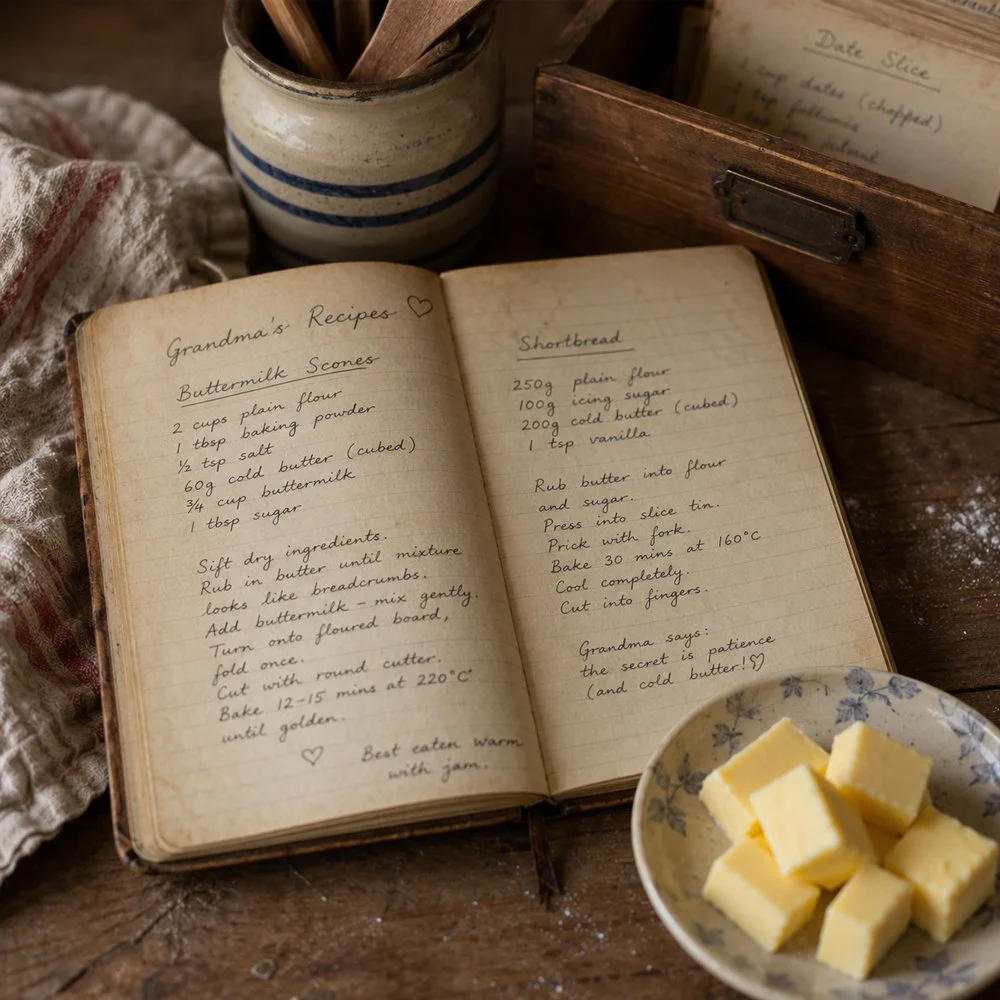 Grandma's Recipes ♡
Buttermilk Scones
2 cups plain flour
1 tbsp baking powder
½ tsp salt
60g cold butter (cubed)
¾ cup buttermilk
1 tbsp sugar
Sift dry ingredients.
Rub in butter until mixture
looks like breadcrumbs.
Add buttermilk – mix gently.
Turn onto floured board,
fold once.
Cut with round cutter.
Bake 12–15 mins at 220°C
until golden.
♡ Best eaten warm
with jam.
Shortbread
250g plain flour
100g icing sugar
200g cold butter (cubed)
1 tsp vanilla
Rub butter into flour
and sugar.
Press into slice tin.
Prick with fork.
Bake 30 mins at 160°C
Cool completely.
Cut into fingers.
Grandma says:
the secret is patience
(and cold butter!♡
Date Slice
1 cup dates (chopped)